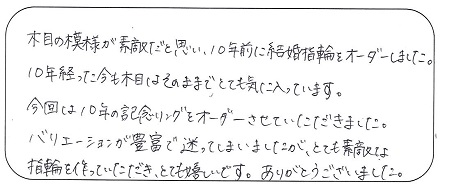 木目の模様が素敵だと思い、10年前に結婚指輪をオーダーしました。
10年経った今も木目はそのままでとても気に入っています。
今回は10年の記念リングをオーダーさせていただきました。
バリエーションが豊富で迷ってしまいましたが、とても素敵な
指輪を作っていただき、とても嬉しいです。ありがとうございました。